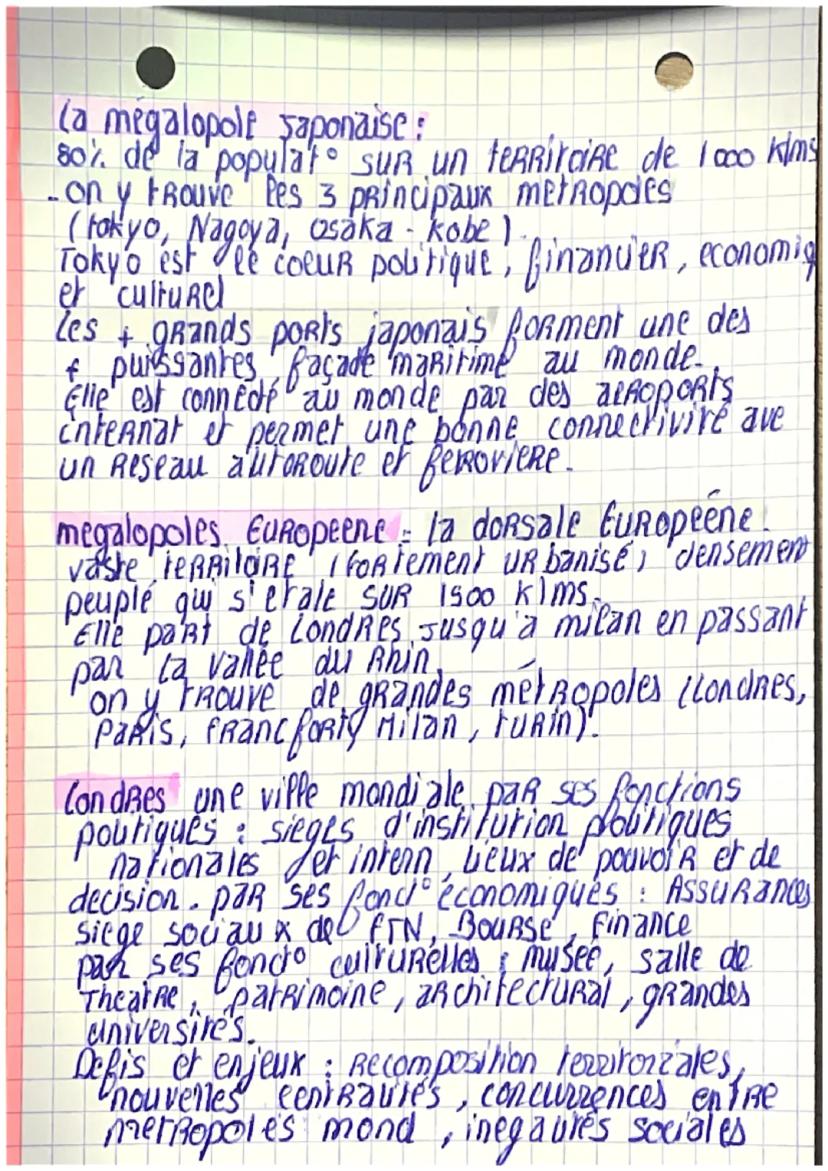 la mégalopole Japonaise :
80% de la populat° sur un territoire de 1000 klms
- on y trouve les 3 principaux métropoles
(tokyo, Nagoya, osaka - kobe).
Tokyo est le coeur politique, financier, economiq
et culturel
les + grands ports japonais forment une des
+ puissantes façade maritime au monde.
Elle est connecté au monde par des aeroports
internat et permet une bonne connectivité ave
un reseau autoroute et feroviere.
megalopoles Européene : la dorsale Européene.
vaste territoire (fortement urbanisé) densement
peuplé qui s'etale sur 1500 klms.
Elle part de Londres jusqu'a milan en passant
par la vallée du Rhin.
on y trouve de grandes métropoles (Londres,
Paris, francfort, Milan, turin).
Londres une ville mondiale par ses fonctions
politiques : sieges d'institution politiques
nationales et intern, lieux de pouvoir et de
decision. par ses fonct° économiques : Assurances
siege sociaux de FTN, Bourse, finance
par ses fonct° culturelles : musée, salle de
theatre, patrimoine, architectural, grandes
universités.
Defis et enjeux : recomposition territoriales,
nouvelles centralités, concurrences entre
metropoles mond, inegalités sociales